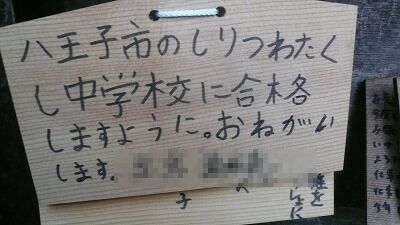 八王子市のしりつわたく
し中学校に合格
しますように。おねがい
します。
子